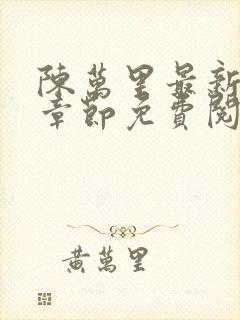 陳萬里最新
章節免費閱
黃萬里